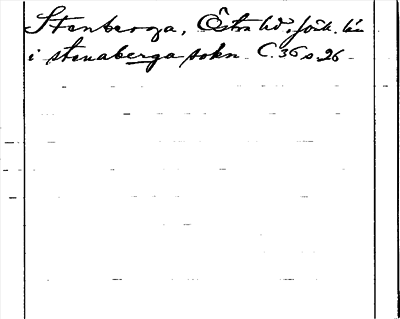 Stenberga, Östra hd, Jönk. län
i stenaberga sokn C. 36 s. 26